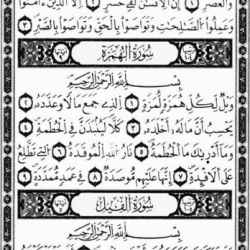 وَٱلۡعَصۡرِ ١ إِنَّ ٱلۡإِنسَٰنَ لَفِي خُسۡرٍ ٢ إِلَّا ٱلَّذِينَ ءَامَنُواْ
وَعَمِلُواْ ٱلصَّٰلِحَٰتِ وَتَوَاصَوۡاْ بِٱلۡحَقِّ وَتَوَاصَوۡاْ بِٱلصَّبۡرِ ٣
سُورَةُ ٱلۡهُمَزَةِ
بِسۡمِ ٱللَّهِ ٱلرَّحۡمَٰنِ ٱلرَّحِيمِ
وَيۡلٞ لِّكُلِّ هُمَزَةٖ لُّمَزَةٍ ١ ٱلَّذِي جَمَعَ مَالٗا وَعَدَّدَهُۥ ٢
يَحۡسَبُ أَنَّ مَالَهُۥٓ أَخۡلَدَهُۥ ٣ كَلَّاۖ لَيُنۢبَذَنَّ فِي ٱلۡحُطَمَةِ ٤
وَمَآ أَدۡرَىٰكَ مَا ٱلۡحُطَمَةُ ٥ نَارُ ٱللَّهِ ٱلۡمُوقَدَةُ ٦ ٱلَّتِي تَطَّلِعُ
عَلَى ٱلۡأَفۡـِٔدَةِ ٧ إِنَّهَا عَلَيۡهِم مُّؤۡصَدَةٞ ٨ فِي عَمَدٖ مُّمَدَّدَةِۭ ٩
سُورَةُ ٱلۡفِيلِ
بِسۡمِ ٱللَّهِ ٱلرَّحۡمَٰنِ ٱلرَّحِيمِ